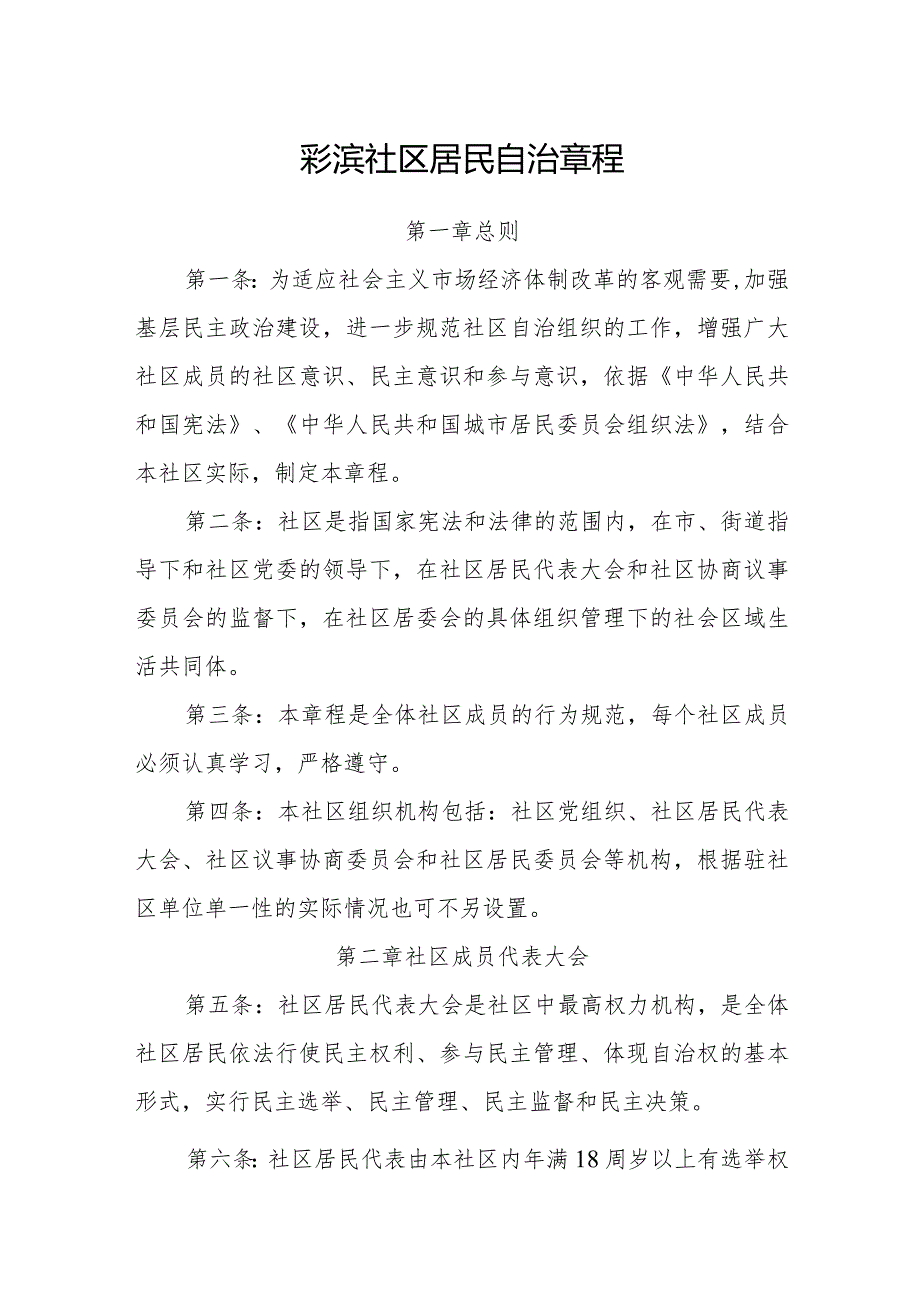 彩滨社区居民自治章程
第一章总则
第一条：为适应社会主义市场经济体制改革的客观需要,加强
基层民主政治建设，进一步规范社区自治组织的工作，增强广大
社区成员的社区意识、民主意识和参与意识，依据《中华人民共
和国宪法》、《中华人民共和国城市居民委员会组织法》，结合
本社区实际，制定本章程。
第二条：社区是指国家宪法和法律的范围内，在市、街道指
导下和社区党委的领导下，在社区居民代表大会和社区协商议事
委员会的监督下，在社区居委会的具体组织管理下的社会区域生
活共同体。
第三条：本章程是全体社区成员的行为规范，每个社区成员
必须认真学习，严格遵守。
第四条：本社区组织机构包括：社区党组织、社区居民代表
大会、社区议事协商委员会和社区居民委员会等机构，根据驻社
区单位单一性的实际情况也可不另设置。
第二章社区成员代表大会
第五条：社区居民代表大会是社区中最高权力机构，是全体
社区居民依法行使民主权利、参与民主管理、体现自治权的基本
形式，实行民主选举、民主管理、民主监督和民主决策。
第六条：社区居民代表由本社区内年满18周岁以上有选举权